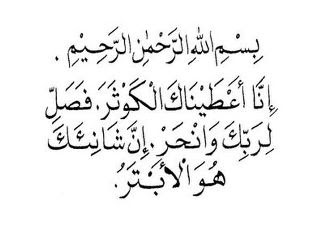 بِسْمِ اللهِ الرَّحْمٰنِ الرَّحِيْمِ .
إِنَّا أَعْطَيْنَاكَ الْكَوْثَرَ. فَصَلِّ
لِرَبِّكَ وَانْحَرْ. إِنَّ شَانِئَكَ
هُوَ الْأَبْتَرُ.